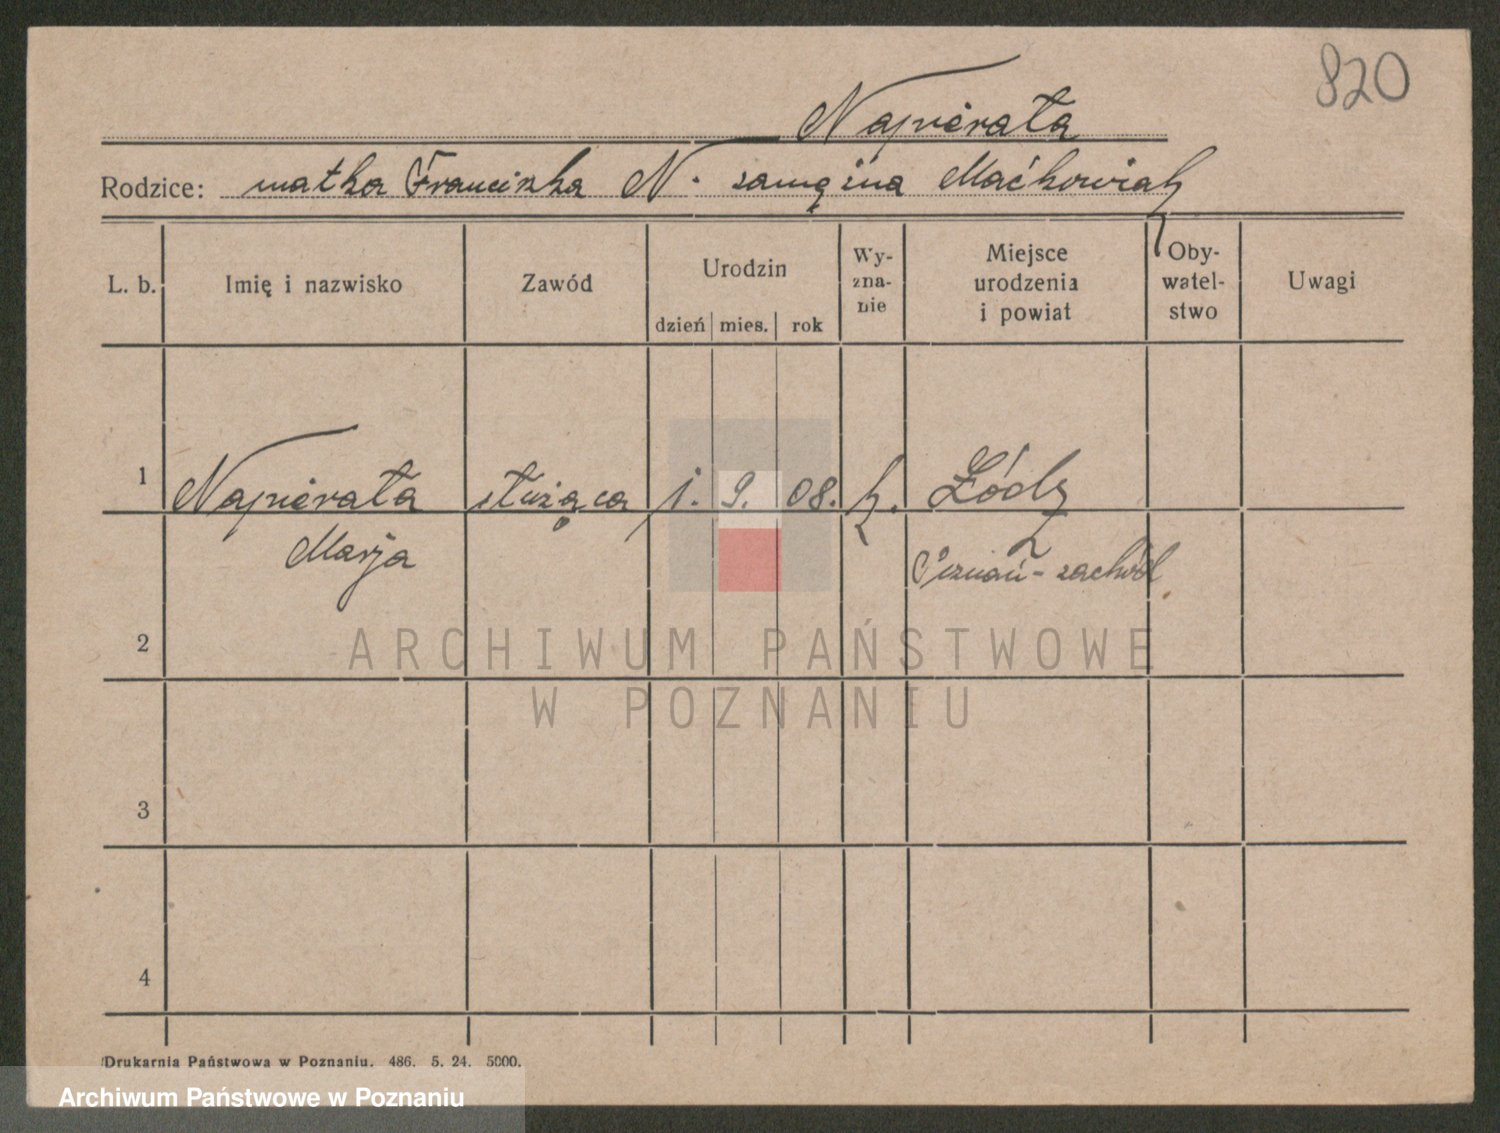 820
Napierała
Rodzice: matka Franciszka N. zamężna Maćkowiak
L. b.
Imię i nazwisko
Zawód
Urodzin
dzień mies. rok
Wy-
zna-
nie
Miejsce
urodzenia
i powiat
Oby-
watel-
stwo
Uwagi
1 Napierała służąca 1. 9. 08. k. Łódz
Marja Poznań-zachód
2
ARCHIWUM PAŃSTWOWE
W POZNANIU
3
4
Drukarnia Państwowa w Poznaniu. 486. 5. 24. 5000.
Archiwum Państwowe w Poznaniu